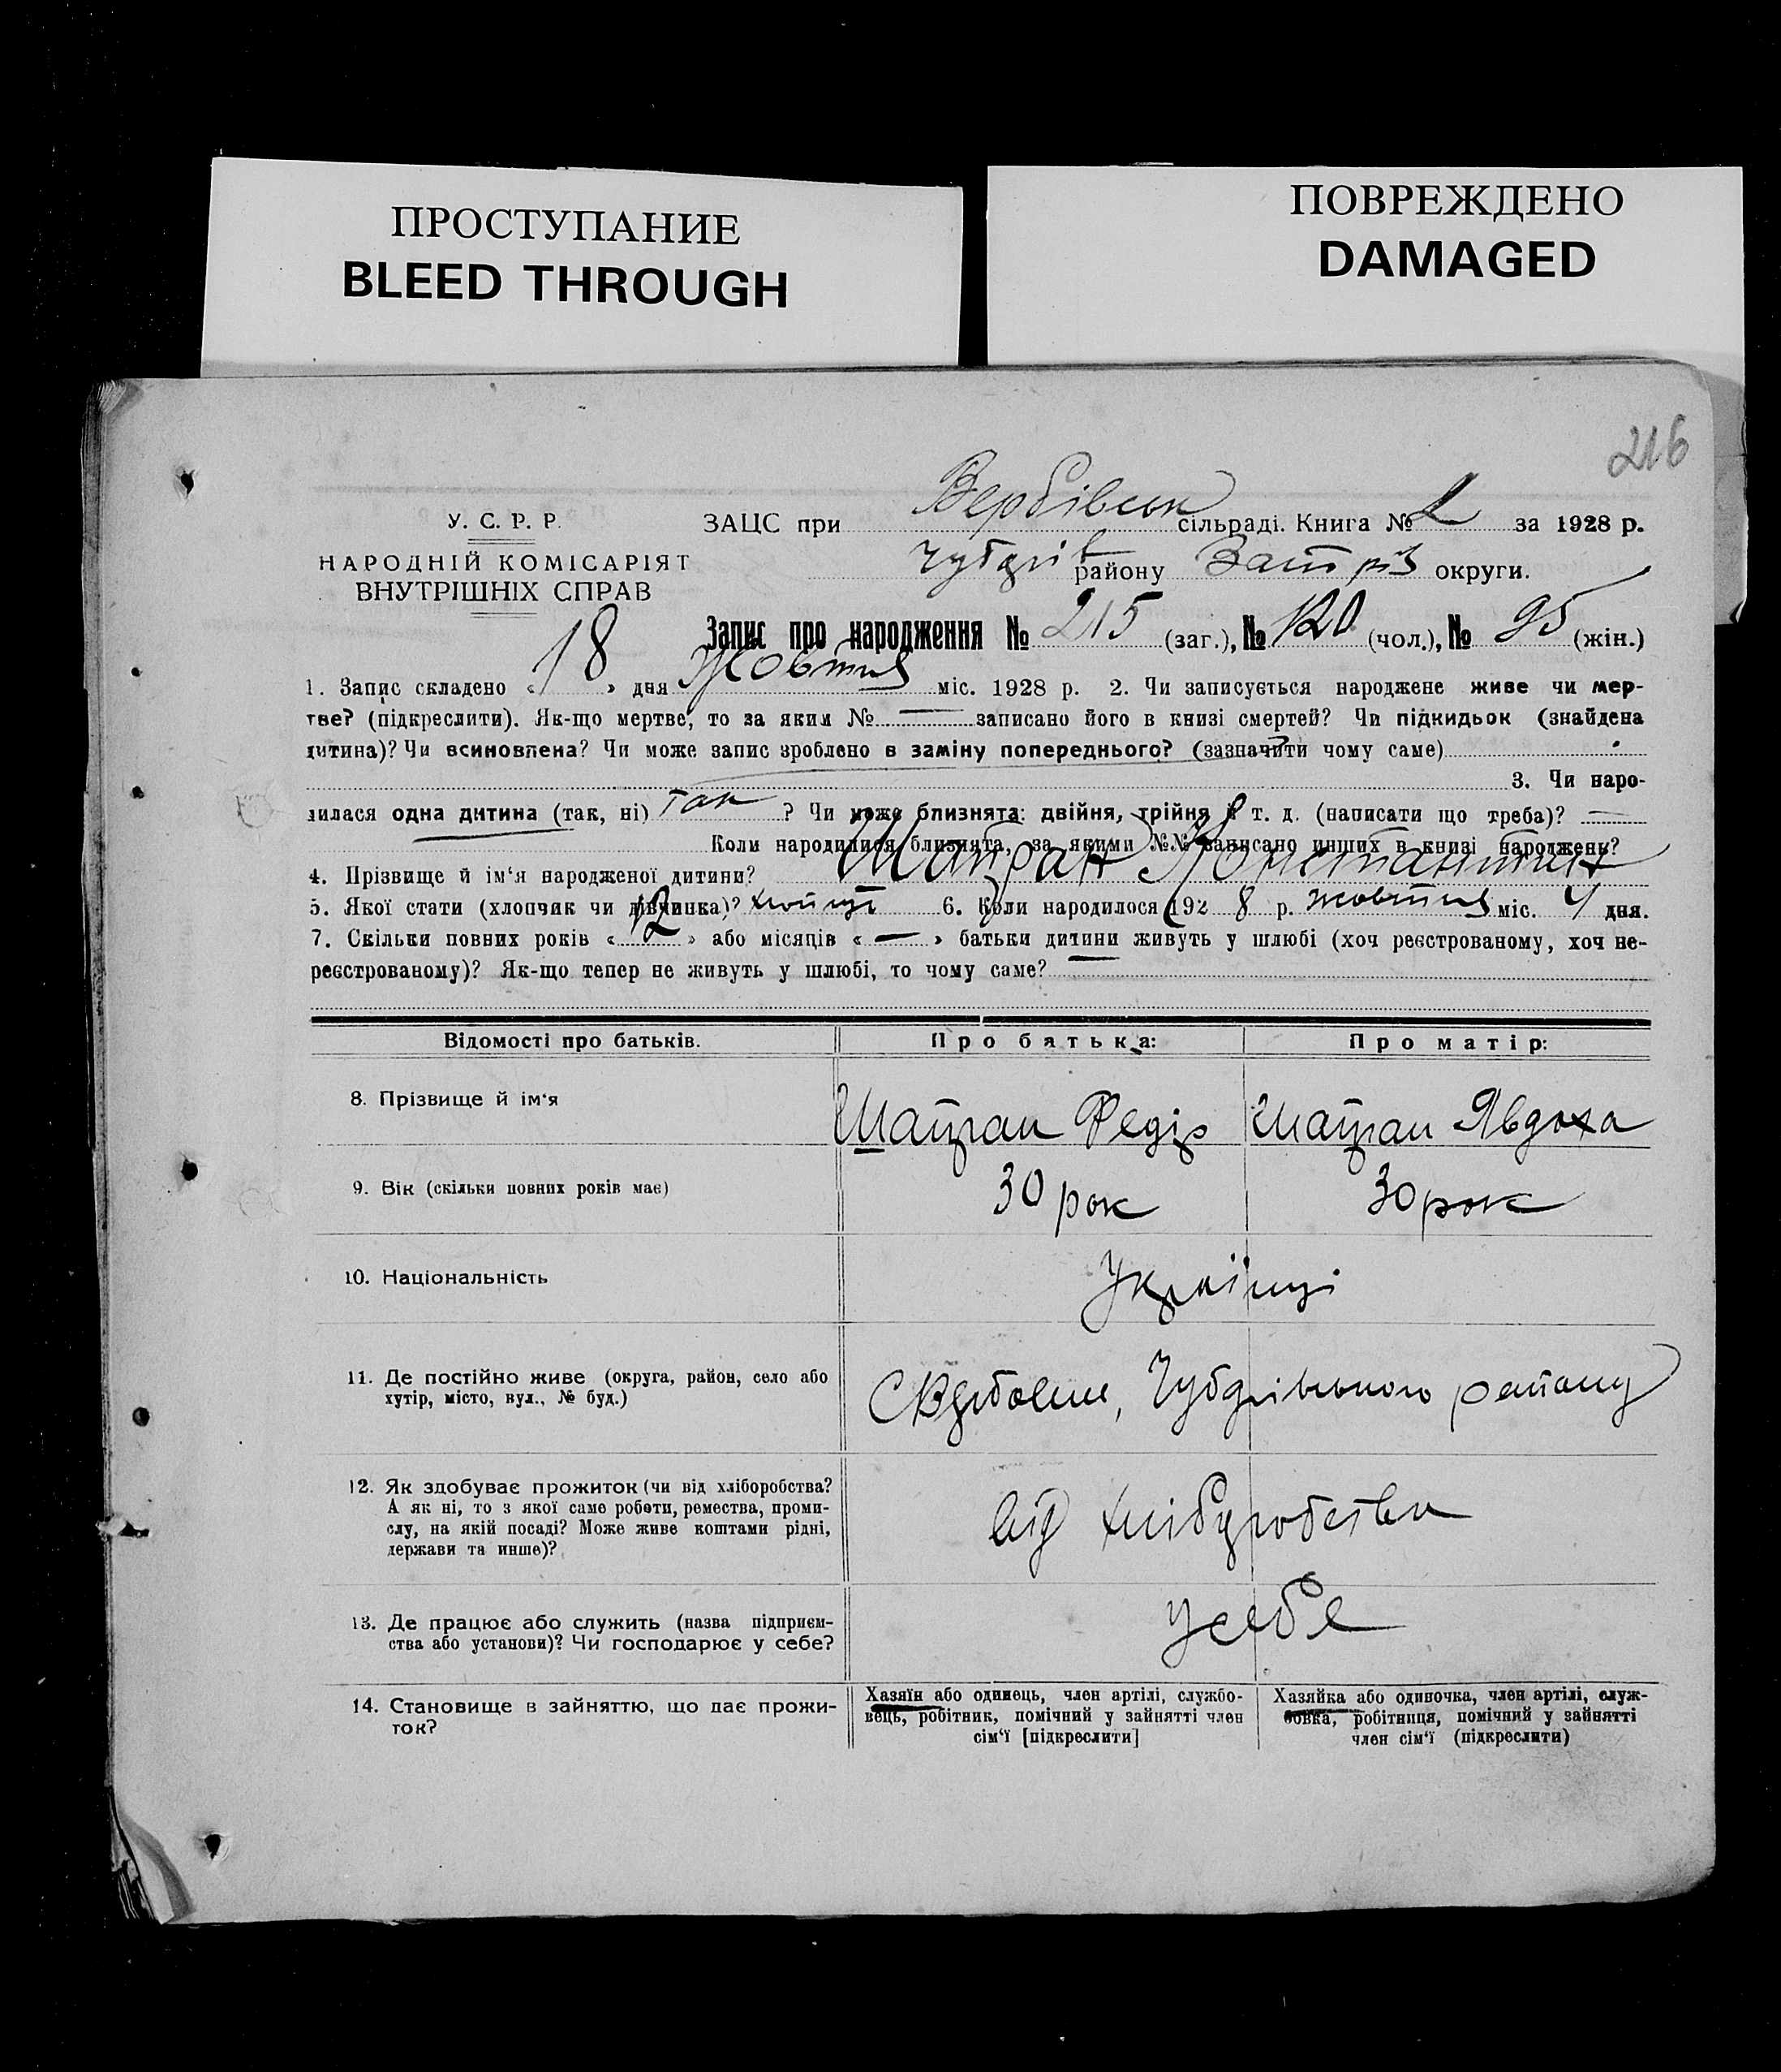 ПРОСТУПАНИЕ
BLEED THROUGH
ПОВРЕЖДЕНО
DAMAGED
216
У. С. Р. Р.
НАРОДНІЙ КОМІСАРІЯТ
ВНУТРІШНІХ СПРАВ
ЗАЦС при Вербівськ сільраді. Книга № 2 за 1928 р.
Чубарів району Запоріз округи.
Запис про народження № 215 (заг.), № 120 (чол.), № 95 (жін.)
1. Запис складено « 18 » дня Жовтня міс. 1928 р. 2. Чи записується народжене живе чи мер-
тве? (підкреслити). Як-що мертве, то за яким № — записано його в книзі смертей? Чи підкидьок (знайдена
дитина)? Чи всиновлена? Чи може запис зроблено в заміну попереднього? (зазначити чому саме)
3. Чи наро-
дилася одна дитина (так, ні) так ? Чи може близнята: двійня, трійня й т. д. (написати що треба)? —
Коли народилися близнята, за якими №№ записано инших в книзі народжень?
4. Прізвище й ім‘я народженої дитини? Шапран Константин
5. Якої стати (хлопчик чи дівчинка)? 6. Коли народилося 192 8 р. жовтня міс. 4 дня.
7. Скільки повних років « 12 » або місяців « — » батьки дитини живуть у шлюбі (хоч реєстрованому, хоч не-
реєстрованому)? Як-що тепер не живуть у шлюбі, то чому саме? —
Відомості про батьків. Про батька: Про матір:
8. Прізвище й ім‘я Шапран Федір Шапран Явдоха
9. Вік (скільки повних років має) 30 рок 30 рок
10. Національність Українці
11. Де постійно живе (округа, район, село або
хутір, місто, вул., № буд.)
С Вербове, Чубарівського району
12. Як здобуває прожиток (чи від хліборобства?
А як ні, то з якої саме роботи, ремества, проми-
слу, на якій посаді? Може живе коштами рідні,
держави та инше)?
від хліборобства
13. Де працює або служить (назва підприєм-
ства або установи)? Чи господарює у себе?
У себе
14. Становище в зайняттю, що дає прожи-
ток?
Хазяїн або одинець, член артілі, службо-
вець, робітник, помічний у зайнятті член
сім‘ї [підкреслити]
Хазяйка або одиночка, член артілі, служ-
бовка, робітниця, помічний у зайнятті
член сім‘ї (підкреслити)